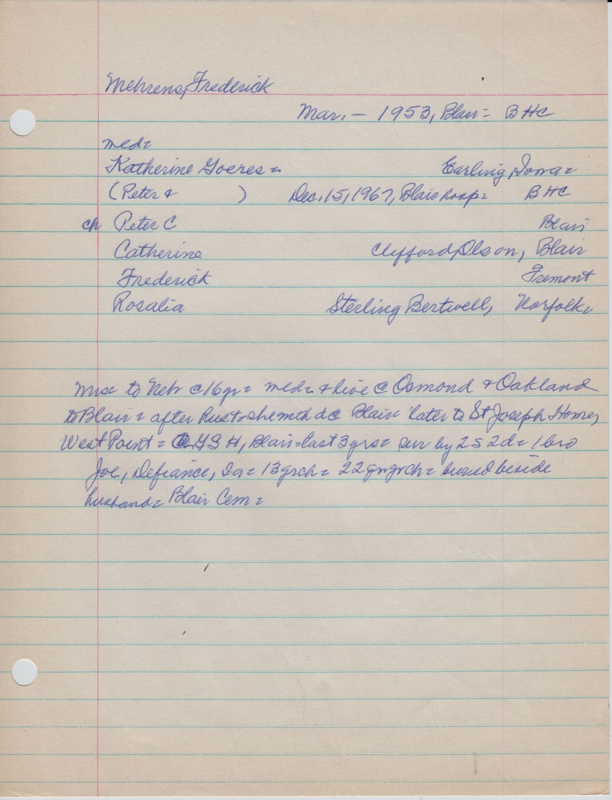 Mehrens, Frederick
Mar. – 1953, Blair = BHC
med=
Katherine Goeres = Earling, Iowa =
(Peter & ) Dec. 15, 1967, Blair hosp= BHC
ch Peter C Blair
Catherine Clifford Olson, Blair
Frederick Fremont
Rosalia Sterling Bertwell, Norfolk=
to Nebr c 16 yr = med= & live c Osmond & Oakland
to Blair = after hus to she mth d c Blair= later to St Joseph Home,
West Point = GSH, Blair=last 3 yrs= sur by 2s 2d= 1 bro
Joe, Defiance, Ia = 13 grch = 22 grgrch = buried beside
husband= Blair Cem=